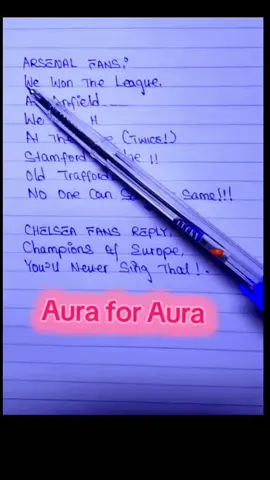 ARSENAL FANS:
We Won The League.
Anfield
We
At The (Twice!)
Stamford !!
Old Trafford
No One Can Same!!!
CHELSEA FANS REPLY:
Champions of Europe,
You'll Never Sing That!.
Aura for Aura